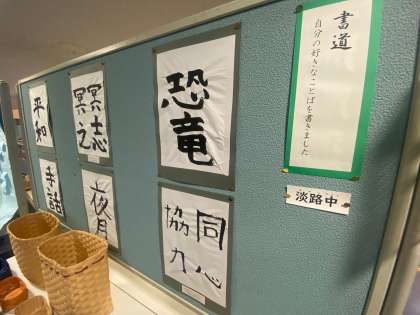 書道
自分の好きなことばを書きました
淡路中
恐竜
同心
協力
冥冥
之志
夜月
平和
手話